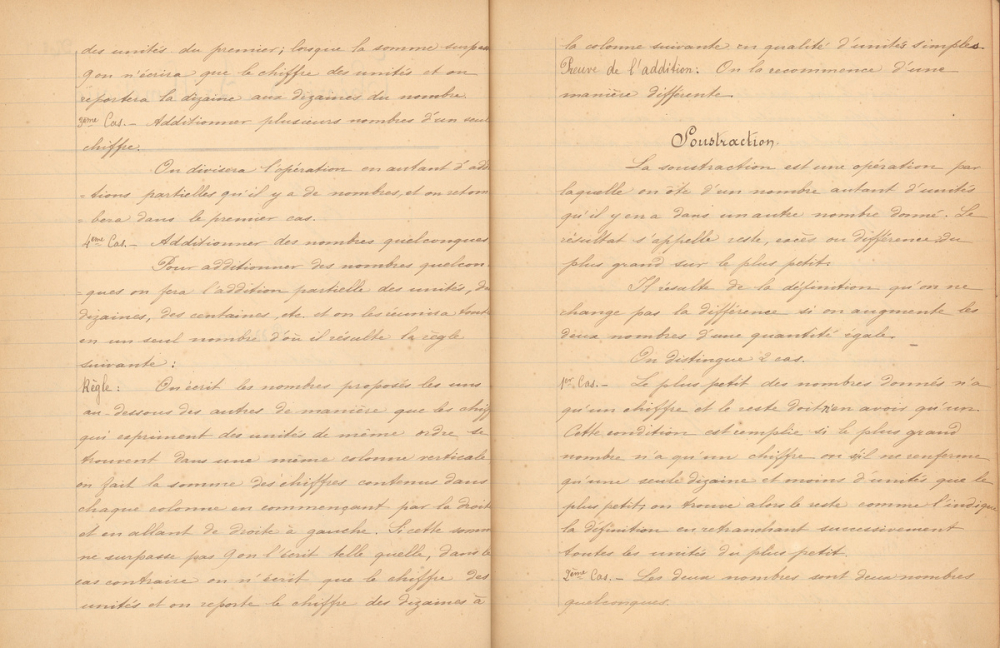 des unités du premier; lorsque la somme surpasse
9 on n'écrira que le chiffre des unités et on
reportera la dizaine aux dizaines du nombre.
3ème Cas._ Additionner plusieurs nombres d'un seul
chiffre.
On divisera l'opération en autant d'addi
-tions partielles qu'il y a de nombres, et on retom
-bera dans le premier cas.
4ème Cas._ Additionner des nombres quelconques
Pour additionner des nombres quelcon-
-ques on fera l'addition partielle des unités, des
dizaines, des centaines, etc et on les réunira toutes
en un seul nombre d'où il résulte la règle
suivante :
Règle : On écrit les nombres proposés les uns
au-dessous des autres de manière que les chiff
qui expriment des unités de même ordre se
trouvent dans une même colonne verticale
on fait la somme des chiffres contenus dans
chaque colonne en commençant par la droite
et en allant de droite à gauche. Si cette somme
ne surpasse pas 9 on l'écrit telle quelle, dans le
cas contraire on n'écrit que le chiffre des
unités et on reporte le chiffre des dizaines à
la colonne suivante en qualité d'unités simples.
Preuve de l'addition : On la recommence d'une
manière différente.
Soustraction.
La soustraction est une opération par
laquelle on ôte d'un nombre autant d'unités
qu'il y en a dans un autre nombre donné. Le
résultat s'appelle reste, excès ou différence du
plus grand sur le plus petit.
Il résulte de la définition qu'on ne
change pas la différence si on augmente les
deux nombres d'une quantité égale. _
On distingue 2 cas.
1er Cas._ Le plus petit des nombres donnés n'a
qu'un chiffre et le reste doit n'en avoir qu'un.
Cette condition est remplie si le plus grand
nombre n'a qu'un chiffre ou s'il ne renferme
qu'une seule dizaine et moins d'unités que le
plus petit; on trouve alors le reste comme l'indique
la définition en retranchant successivement
toutes les unités du plus petit.
2ème Cas._ Les deux nombres sont deux nombres
quelconques.